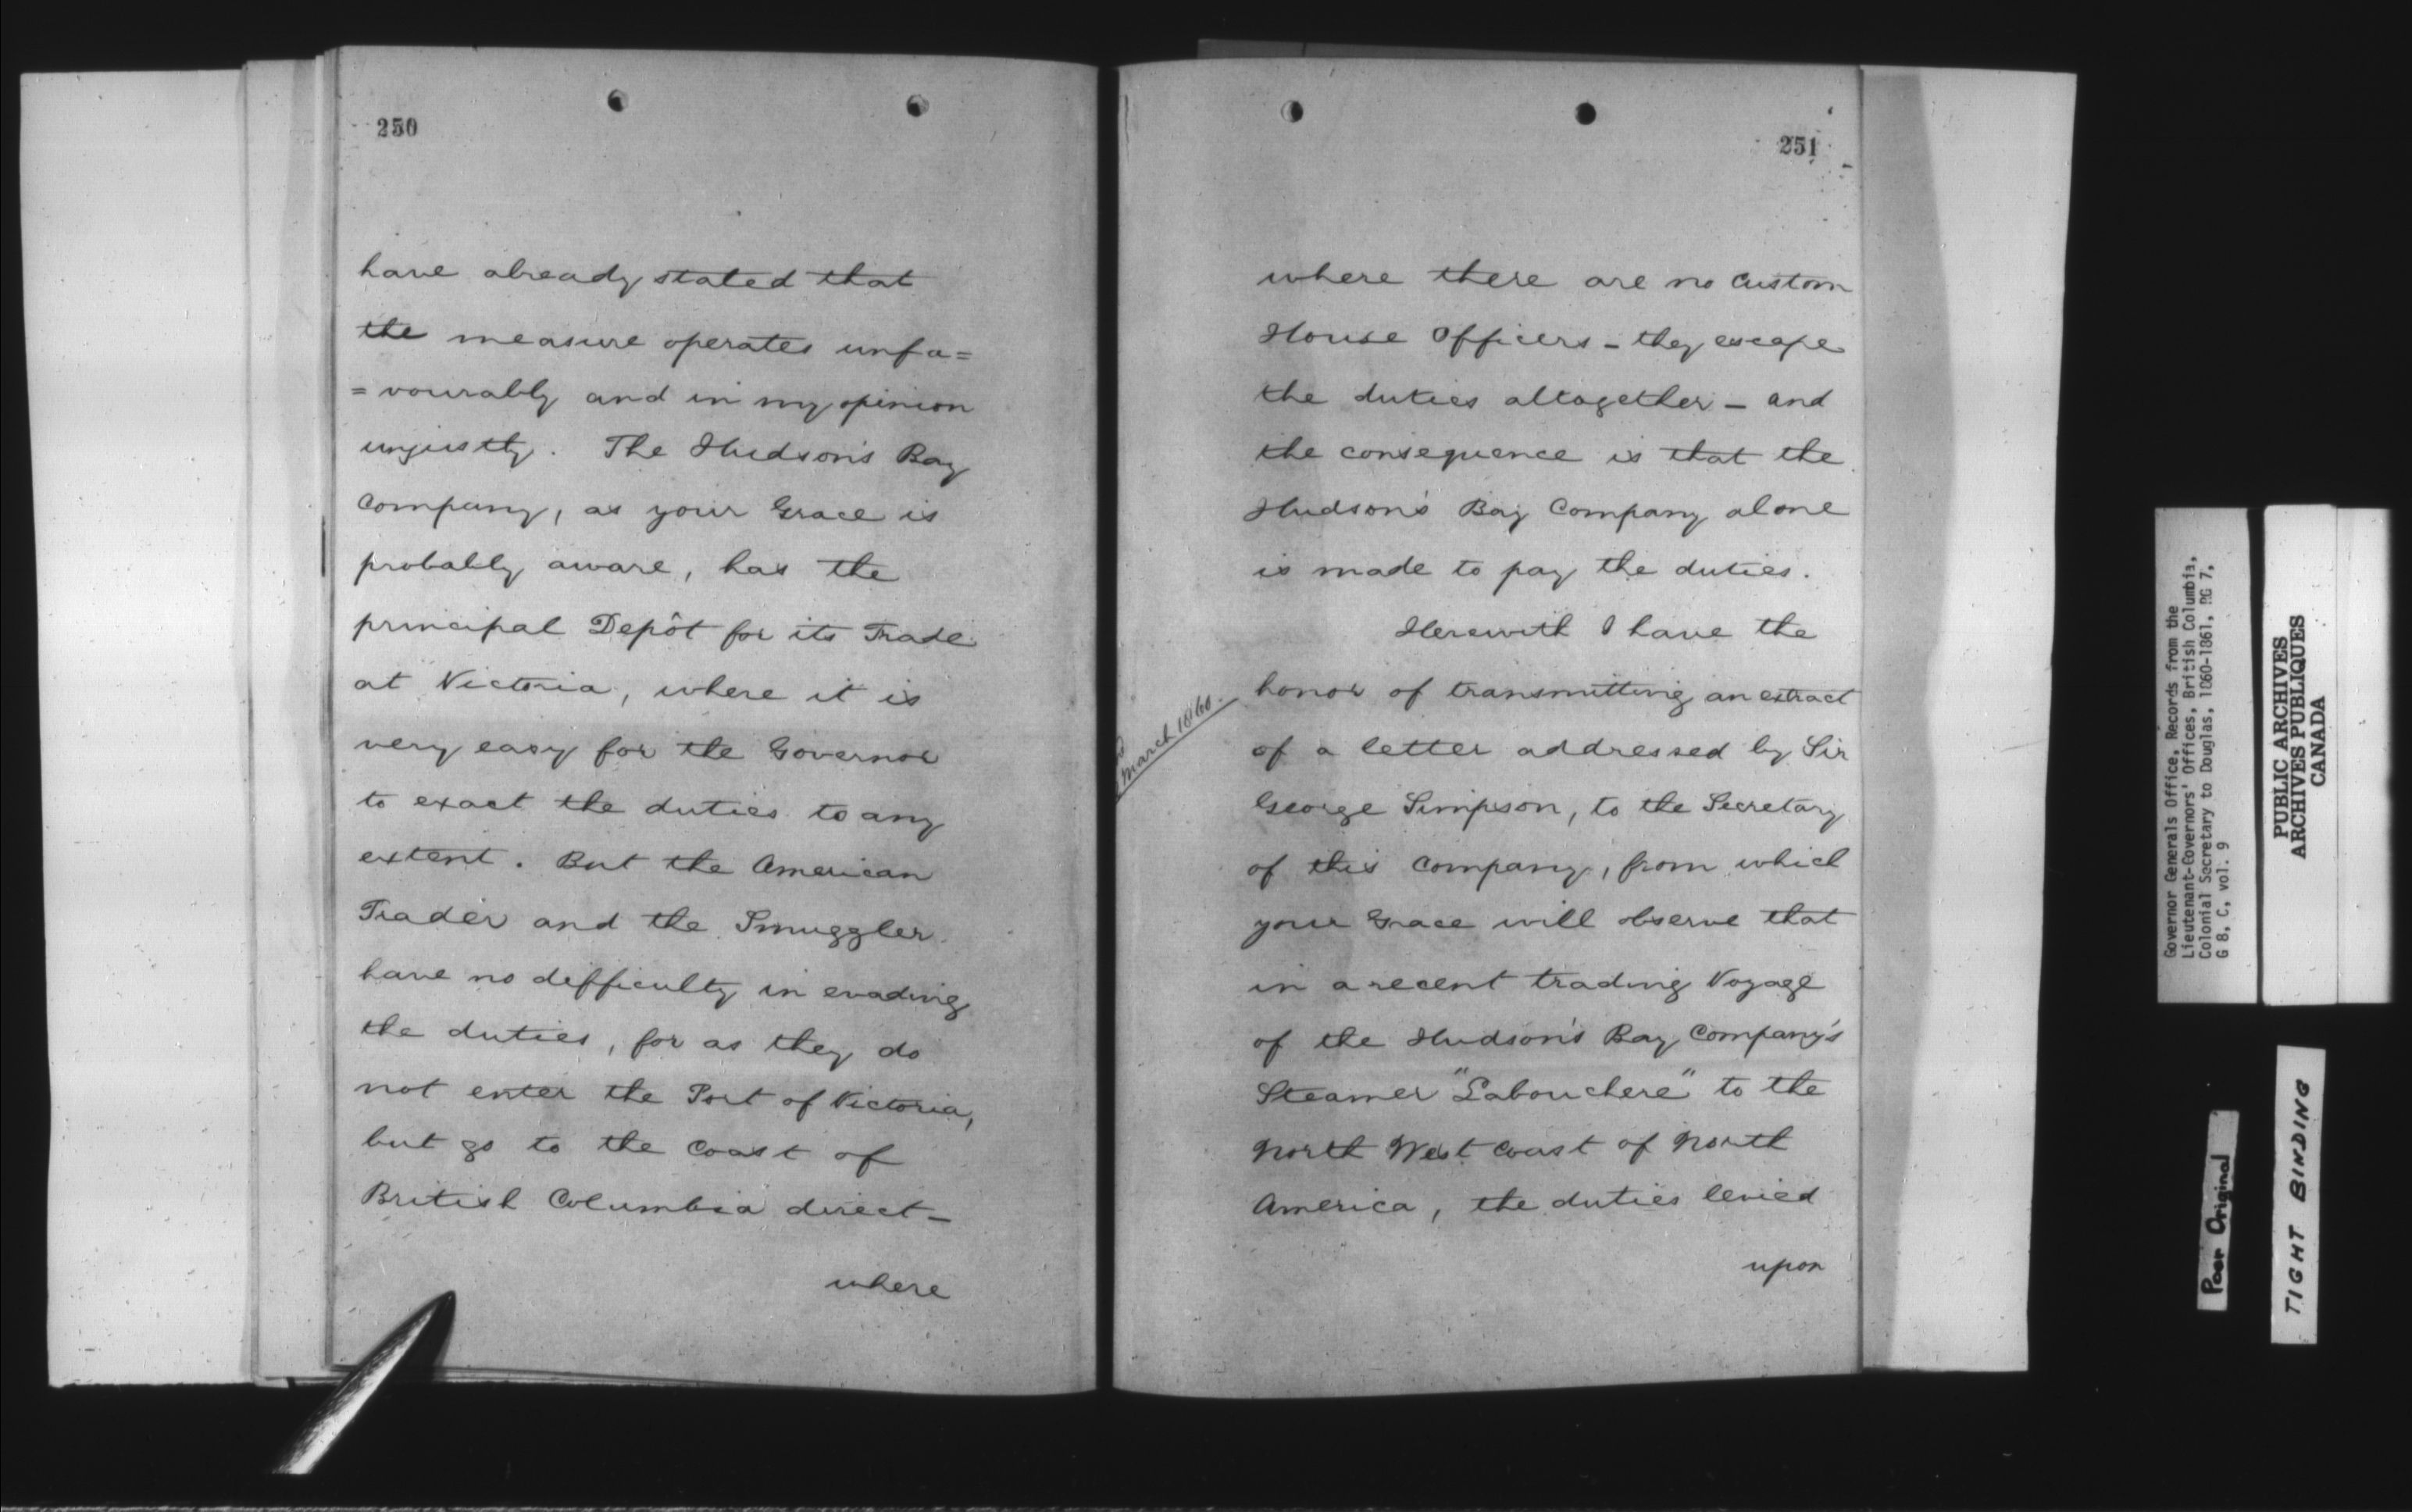 250
have already stated that
the measure operates unfa=
=vourably and in my opinion
unjustly. The Hudson's Bay
Company, as your Grace is
probably aware, has the
principal Depôt for its Trade
at Victoria, where it is
very easy for the Governor
to exact the duties to any
extent. But the American
Trader and the Smuggler
have no difficulty in evading
the duties, for as they do
not enter the Port of Victoria,
but go to the Coast of
British Columbia direct_
where
251
where there are no Custom
House Officers _ they escape
the duties altogether _ and
the consequence is that the
Hudson's Bay Company alone
is made to pay the duties.
Herewith I have the
honor of transmitting an extract
of a letter addressed by Sir
George Simpson, to the Secretary
of this Company, from which
your Grace will observe that
in a recent trading Voyage
of the Hudson's Bay Company's
Steamer "Labouchere" to the
North West Coast of North
America, the duties levied
upon
March 1860.
Governor Generals Office, Records from the
Lieutenant-Governors' Offices, British Columbia,
Colonial Secretary to Douglas, 1860-1861, RG 7,
G 8, C, vol. 9
PUBLIC ARCHIVES
ARCHIVES PUBLIQUES
CANADA
Poor Original
TIGHT BINDING